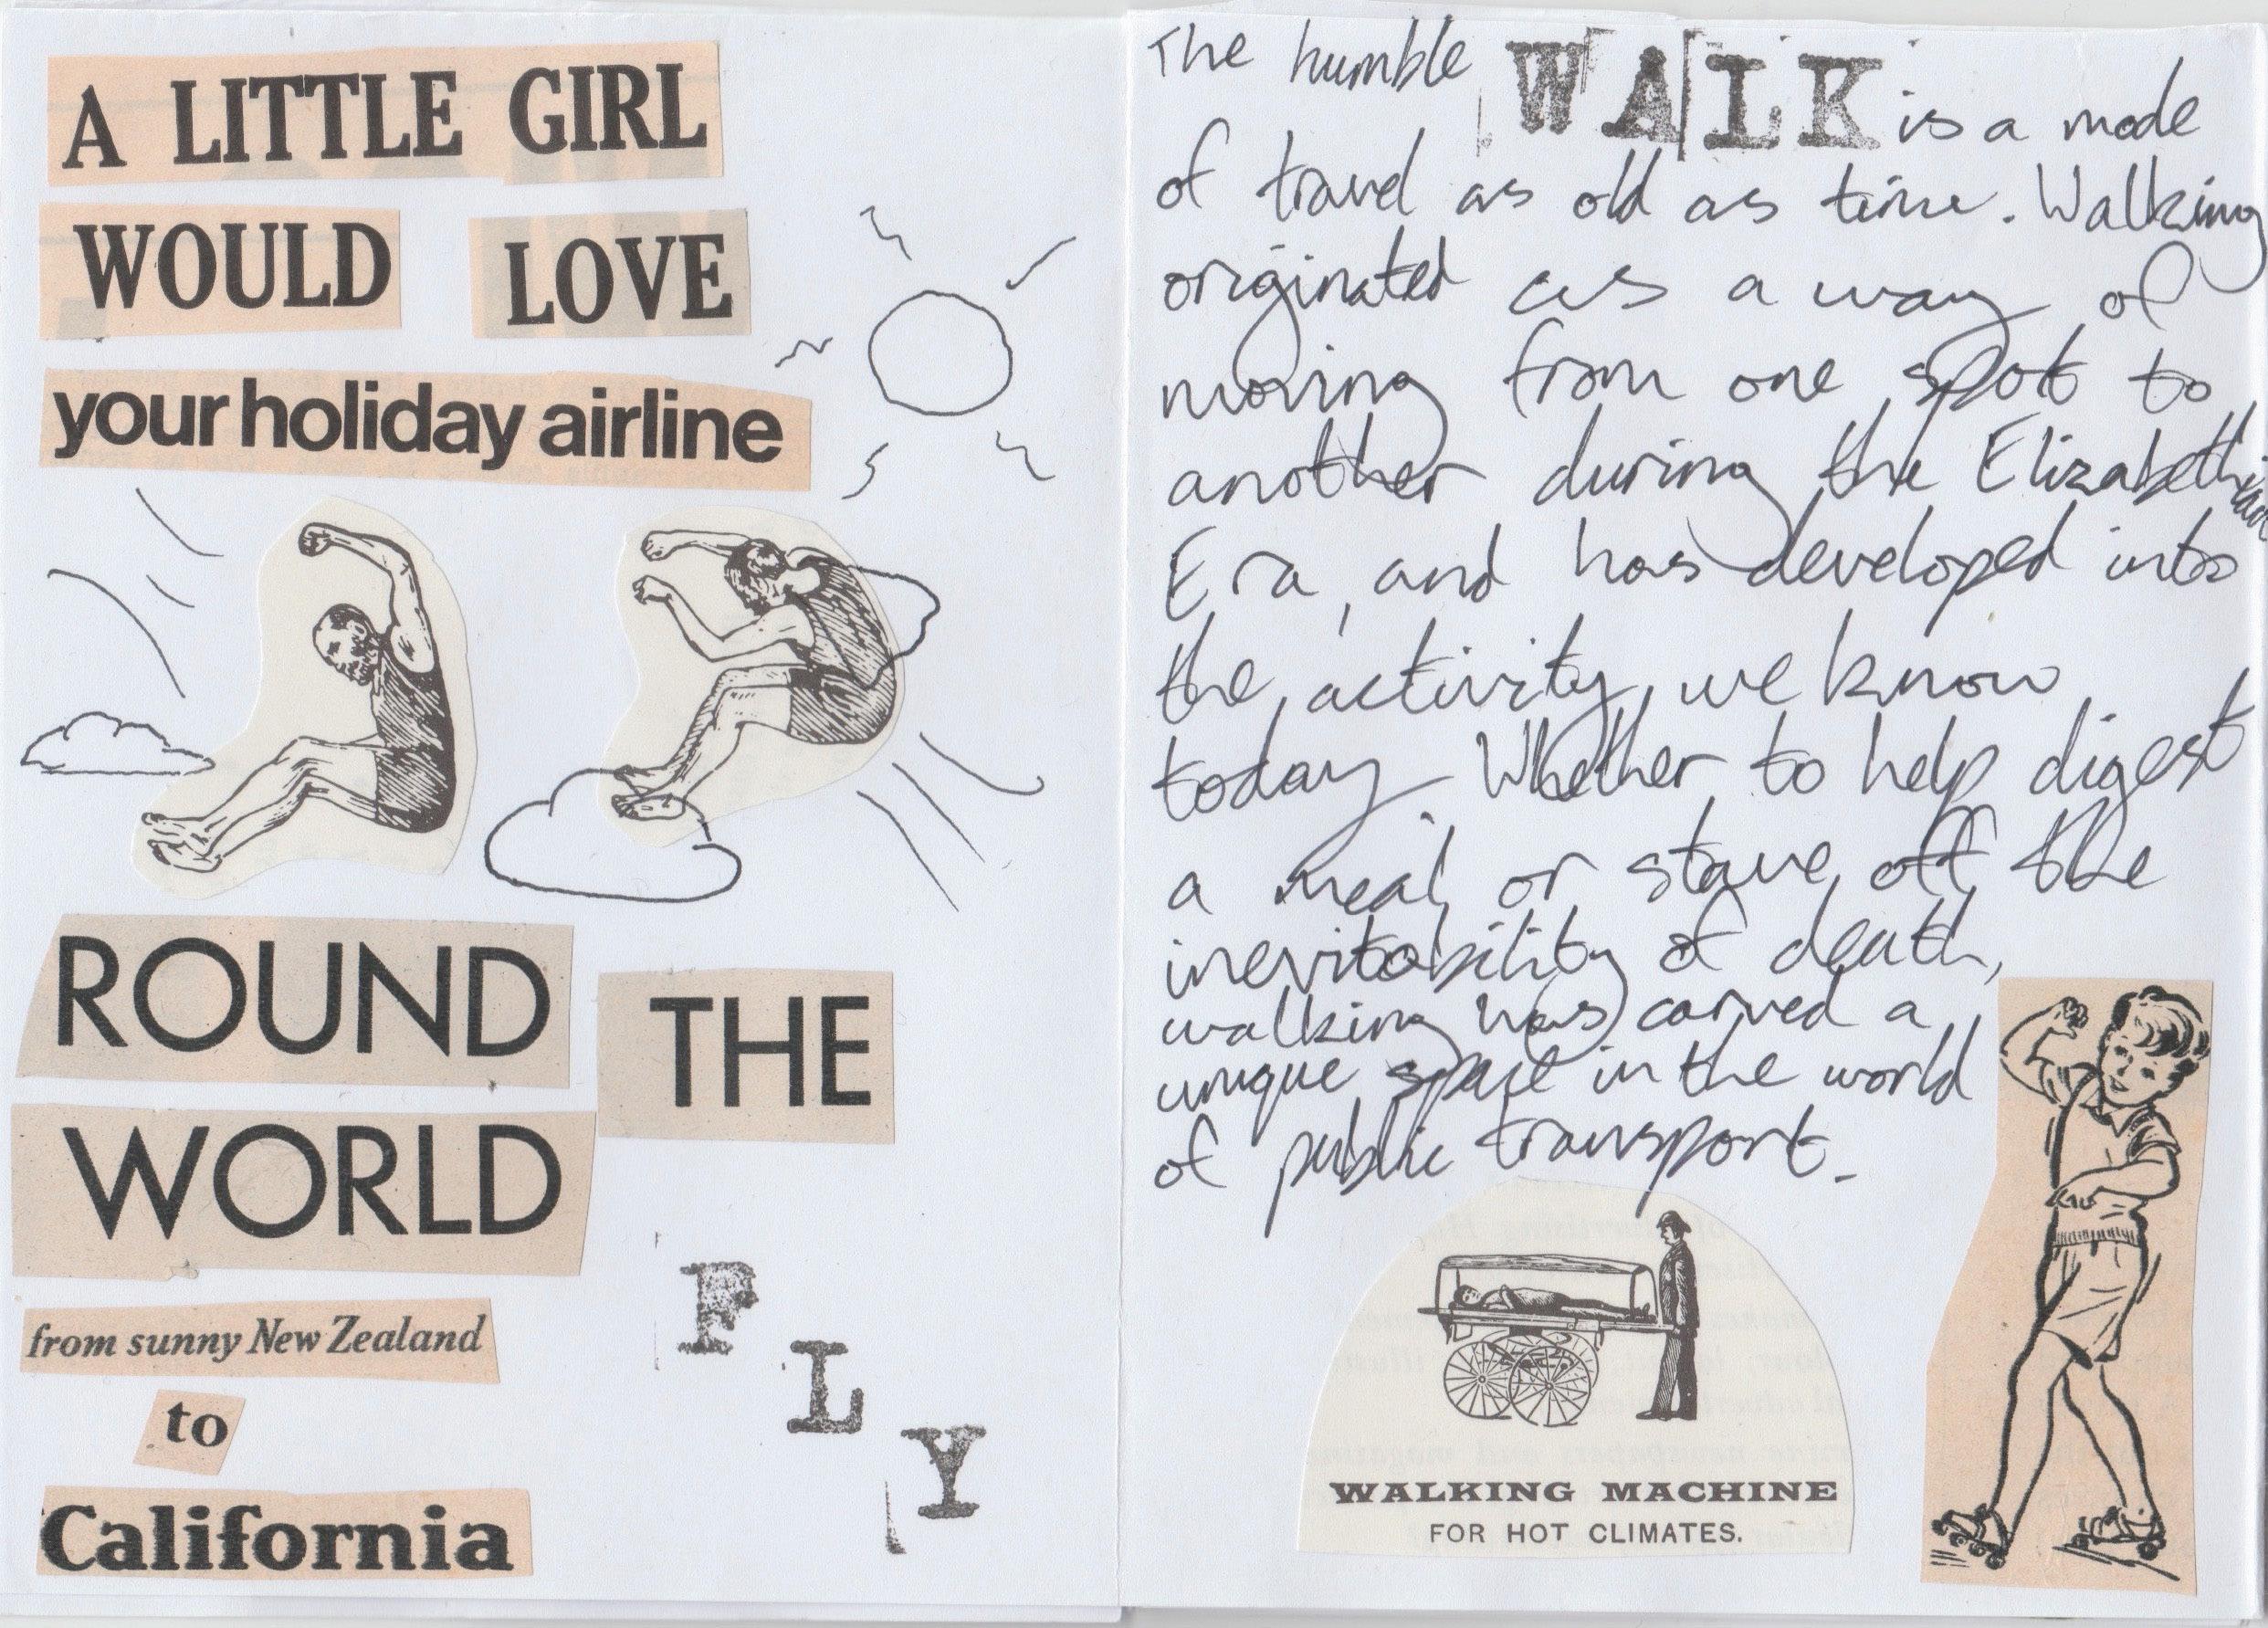 A LITTLE GIRL
WOULD LOVE
your holiday airline
ROUND THE
WORLD
from sunny New Zealand
to
California
FLY
The humble WALK is a mode
of travel as old as time. Walking
originated as a way of
moving from one spot to
another during the Elizabethian
Era, and has developed into
the activity we know
today. Whether to help digest
a meal or stave off the
inevitability of death,
walking has carved a
unique space in the world
of public transport.
WALKING MACHINE
FOR HOT CLIMATES.